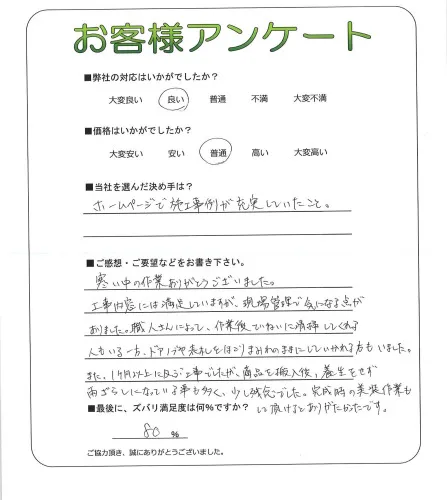 お客様アンケート
■弊社の対応はいかがでしたか?
大変良い 良い 普通 不満 大変不満
■価格はいかがでしたか?
大変安い 安い 普通 高い 大変高い
■当社を選んだ決め手は?
ホームページで施工事例が充実していたこと。
■ご感想・ご要望などをお書き下さい。
寒い中の作業ありがとうございました。
工事内容には満足していますが、現場管理で気になる点が
ありました。職人さんによって、作業後ていねいに清掃してくれる
人もいる一方、ドアノブや表札をほこりまみれのままにしていかれる方もいました。
また、1ヶ月以上に及ぶ工事でしたが、商品を搬入後、養生をせず
雨ざらしになっている事も多く、少し残念でした。完成時の美装作業も
■最後に、ズバリ満足度は何%ですか?
して頂けるとありがたかったです。
80 %
ご協力頂き、誠にありがとうございました。